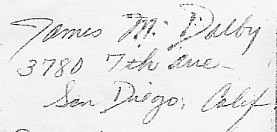 James M. Dalby
3780 7th ave
San Diego, Calif